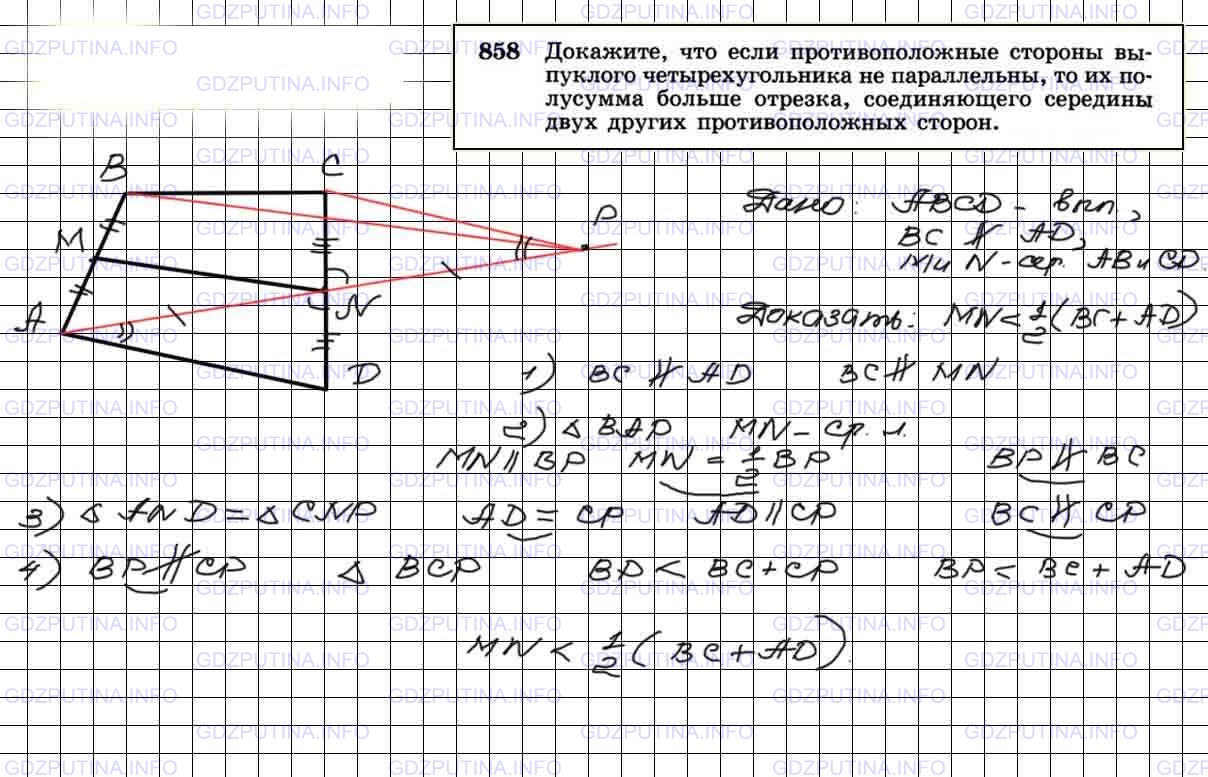 858 Докажите, что если противоположные стороны вы-
пуклого четырехугольника не параллельны, то их по-
лусумма больше отрезка, соединяющего середины
двух других противоположных сторон.
B C
P
M
A N
D
Дано: ABCD - вып.,
BC ∦ AD,
M и N - сер. AB и CD.
Доказать: MN < 1/2 (BC + AD)
1) BC ∦ AD BC ∦ MN
2) △ BAP MN - ср. л.
MN ∥ BP MN = 1/2 BP BP ∦ BC
3) △ AND = △ CNP AD = CP AD ∥ CP BC ∦ CP
4) BP ∦ CP △ BCP BP < BC + CP BP < BC + AD
MN < 1/2 (BC + AD).
GDZPUTINA.INFO